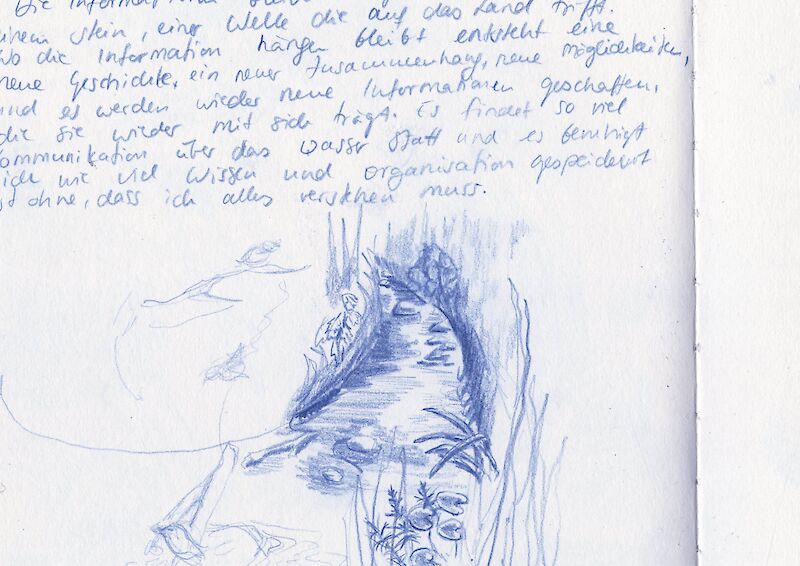 Die Information
einem Stein, einer Welle die auf das Land trifft.
wo die Information hängen bleibt entsteht eine
neue Geschichte, ein neuer Zusammenhang, neue Möglichkeiten,
und es werden wieder neue Informationen geschaffen,
die sie wieder mit sich trägt. Es findet so viel
Kommunikation über das Wasser statt und es beruhigt
mich wie viel Wissen und Organisation gespeichert
ist ohne, dass ich alles verstehen muss.